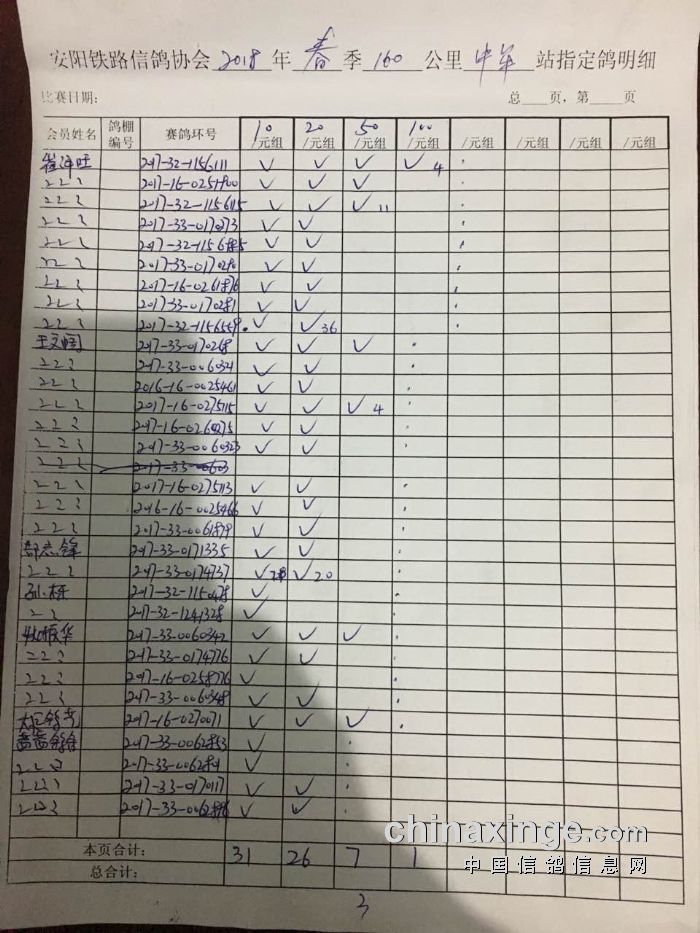 安阳铁路信鸽协会 2018 年 春 季 160 公里 中牟 站指定鸽明细
比赛日期: 总 页, 第 页
会员姓名 鸽棚编号 赛鸽环号 10/元组 20/元组 50/元组 100/元组 /元组 /元组 /元组 /元组
2017-32-1156111 ✓ ✓ ✓ ✓ 4
2017-16-0251900 ✓ ✓ ✓
2017-32-1156115 ✓ ✓ ✓ 11
2017-33-0170273 ✓ ✓
✓ ✓
✓ ✓
2017-16-0261876 ✓ ✓
2017-33-0170281 ✓ ✓
2017-32-1156559 ✓ ✓ 36
2017-33-0170268 ✓ ✓ ✓
2017-33-0060321 ✓ ✓
2016-16-0025461 ✓ ✓
2017-16-0275115 ✓ ✓ ✓ 4
✓ ✓
2017-33-0060323 ✓ ✓
2017-33-00603
2017-16-0275113 ✓ ✓
2016-16-0025466 ✓ ✓
2017-33-0061879 ✓ ✓
2017-33-0171335 ✓ ✓
2017-33-0174737 ✓ ✓ 20
孙栋 2017-32-1150478 ✓
2017-32-1241328 ✓
2017-33-0060342 ✓ ✓ ✓
2017-33-0174776 ✓ ✓
2017-16-0258776 ✓
2017-33-0060348 ✓ ✓
2017-16-0270071 ✓ ✓ ✓
2017-33-0062853 ✓
✓
2017-33-0170117 ✓ ✓
✓ ✓
本页合计: 31 26 7 1
总合计:
3
chinaxinge.com
中国信鸽信息网